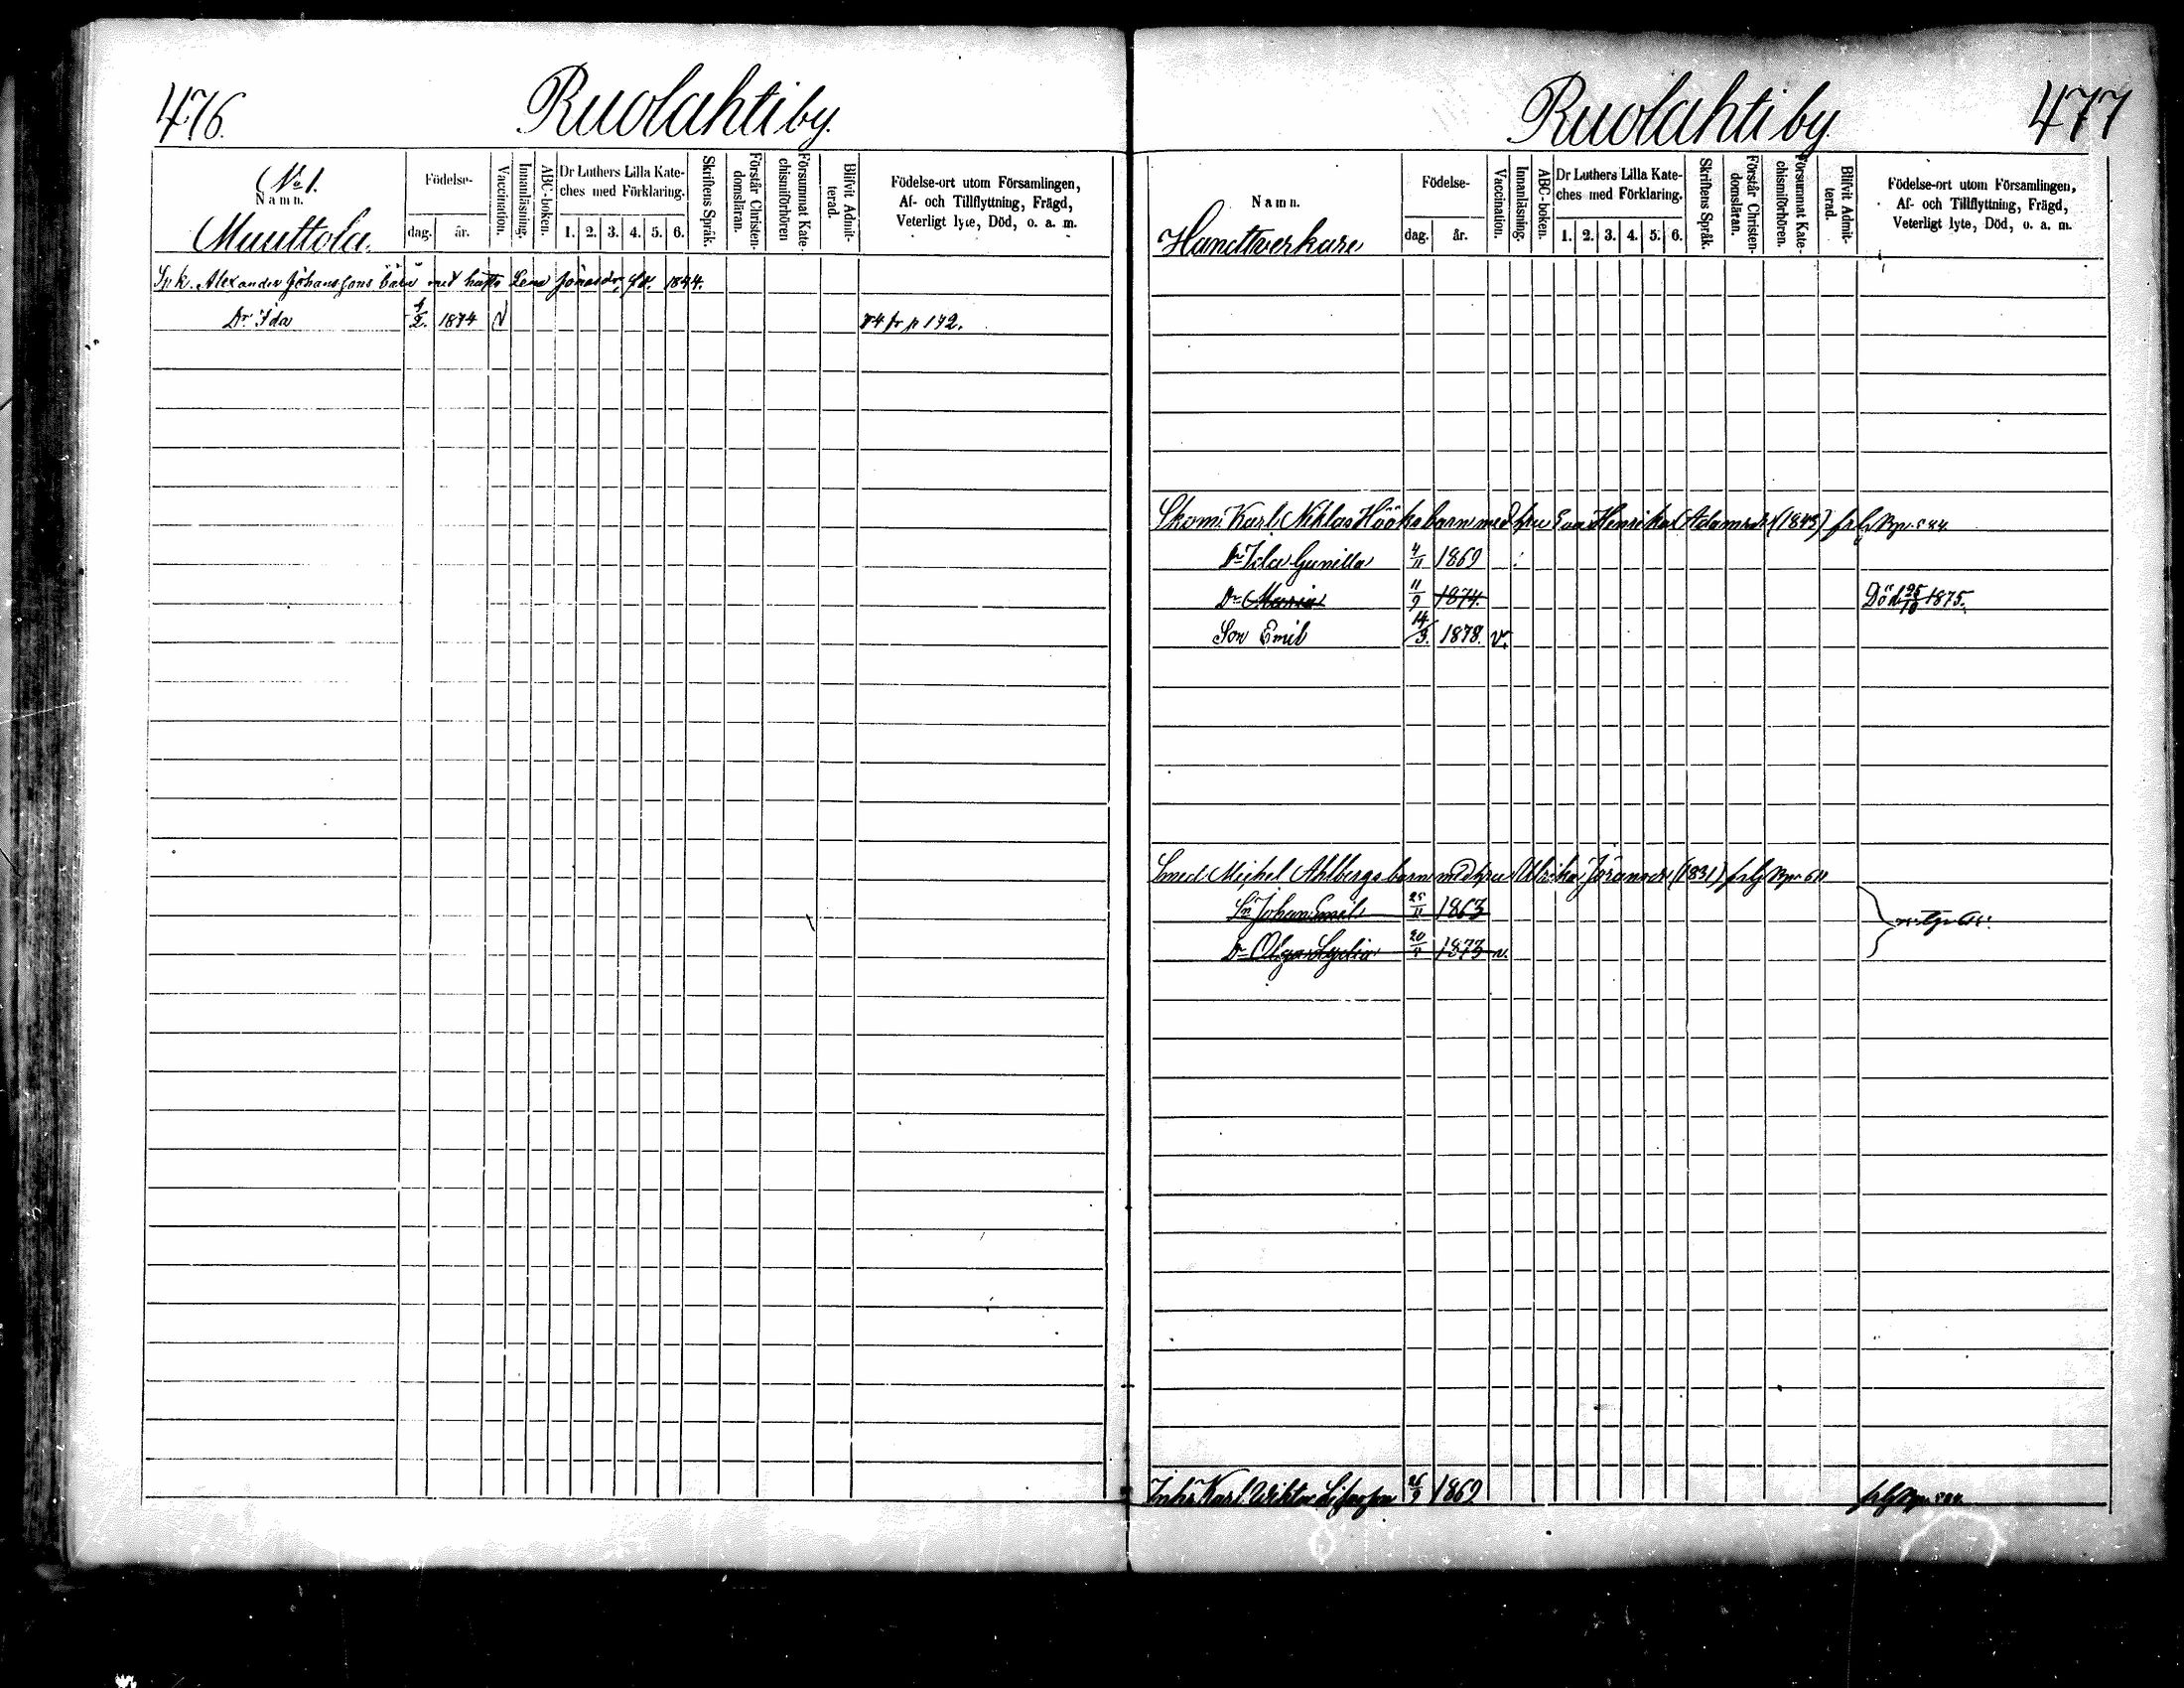 476.
Ruolahti by.
No 1.
Namn.
Muuttola.
Födelse-
dag. år.
Vaccination.
Innanläsning.
ABC-boken.
Dr Luthers Lilla Kate-
ches med Förklaring.
1. 2. 3. 4. 5. 6.
Skriftens Språk.
Förstår Christen-
domsläran.
Försummat Kate-
chismiförhören
Blifvit Admit-
terad.
Födelse-ort utom Församlingen,
Af- och Tillflyttning, Frägd,
Veterligt lyte, Död, o. a. m.
Alexander Johanssons barn med Lena 1844.
Dr Ida 4/2. 1874 v 74 fr p 172.
Ruolahti by
477
Namn.
Handtverkare
Födelse-
dag. år.
Vaccination.
Innanläsning.
ABC-boken.
Dr Luthers Lilla Kate-
ches med Förklaring.
1. 2. 3. 4. 5. 6.
Skriftens Språk.
Förstår Christen-
domsläran.
Försummat Kate-
chismiförhören.
Blifvit Admit-
terad.
Födelse-ort utom Församlingen,
Af- och Tillflyttning, Frägd,
Veterligt lyte, Död, o. a. m.
Skom. Karl Niklas Hööks barn med hru Eva Henrika Adamsdr (1845)
Dr Ida Gunilla 4/11 1869
Dr Maria 11/9 1874. Död 25/10 1875.
Son Emil 14/3. 1878. v.
Smed Michel Ahlbergs barn med hru Ulrika Göransdr (1831)
Sn Johan Emil 25/11 1863
Dr Olga Lydia 20/4 1873 v.
Inhs Karl Wiktor 26/9 1869